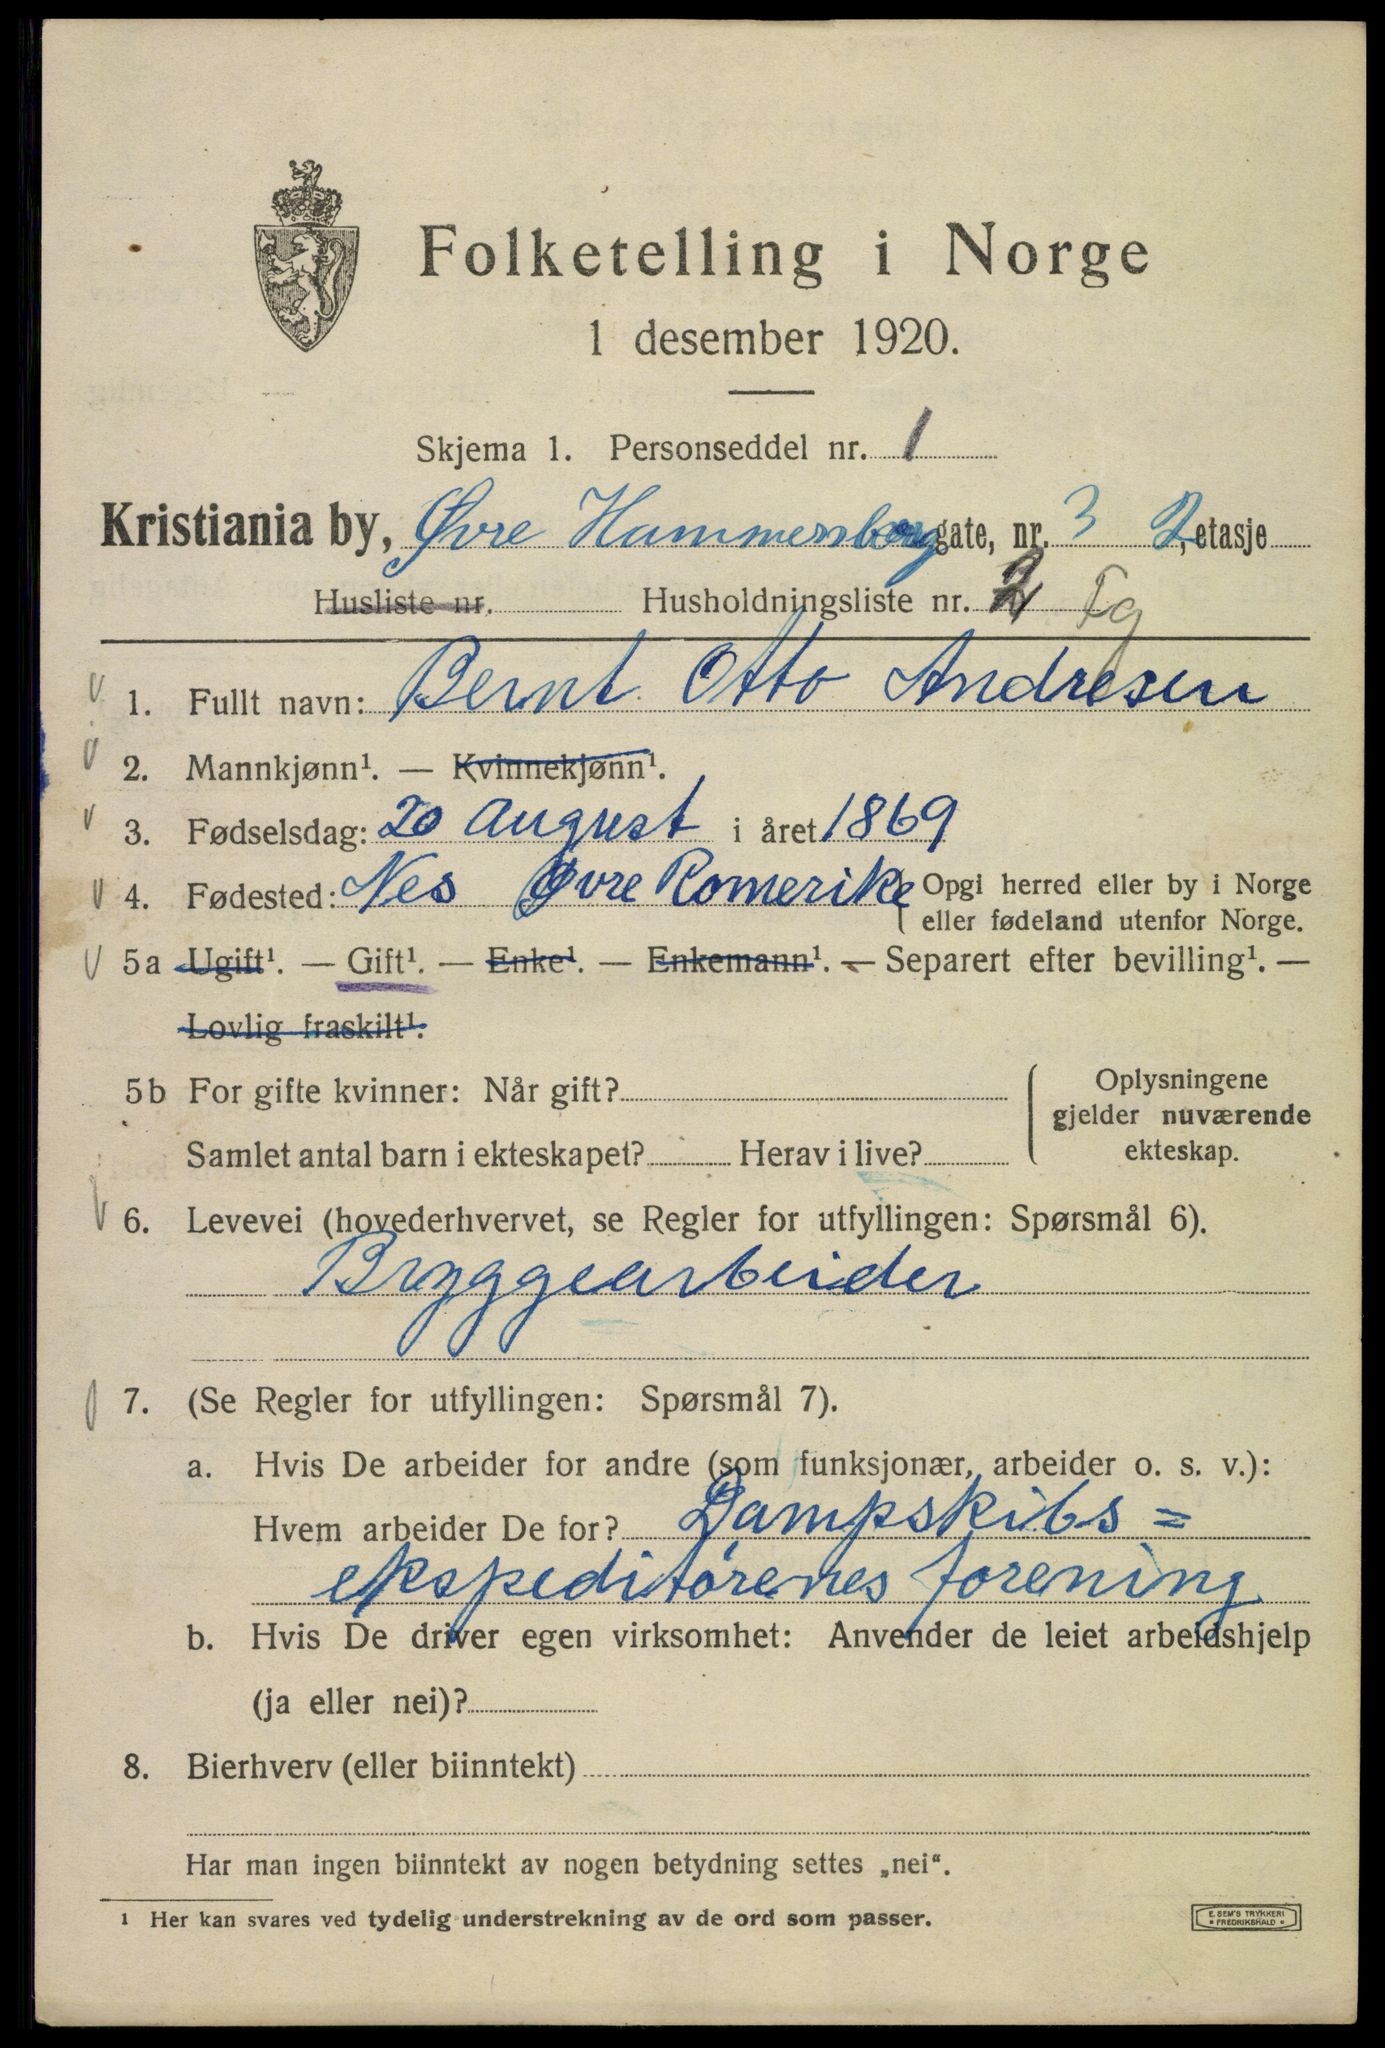 Folketelling i Norge
1 desember 1920.
Skjema 1. Personseddel nr. 1
Kristiania by, Øvre Hammersborg gate, nr. 3 2, etasje
Husliste nr. Husholdningsliste nr. 2 Fg
1. Fullt navn: Bernt Otto Andresen
2. Mannkjønn¹. — Kvinnekjønn¹.
3. Fødselsdag: 20 August i året 1869
4. Fødested: Nes Øvre Romerike Opgi herred eller by i Norge
eller fødeland utenfor Norge.
5a Ugift¹. — Gift¹. — Enke¹. — Enkemann¹. — Separert efter bevilling¹. —
Lovlig fraskilt¹.
5b For gifte kvinner: Når gift?
Samlet antal barn i ekteskapet? Herav i live?
Oplysningene
gjelder nuværende
ekteskap.
6. Levevei (hovederhvervet, se Regler for utfyllingen: Spørsmål 6).
Bryggearbeider
7. (Se Regler for utfyllingen: Spørsmål 7).
a. Hvis De arbeider for andre (som funksjonær, arbeider o. s. v.):
Hvem arbeider De for? Dampskibs=
ekspeditørenes forening
b. Hvis De driver egen virksomhet: Anvender de leiet arbeidshjelp
(ja eller nei)?
8. Bierhverv (eller biinntekt)
Har man ingen biinntekt av nogen betydning settes „nei“.
¹ Her kan svares ved tydelig understrekning av de ord som passer.
E. SEM'S TRYKKERI
• FREDRIKSHALD •